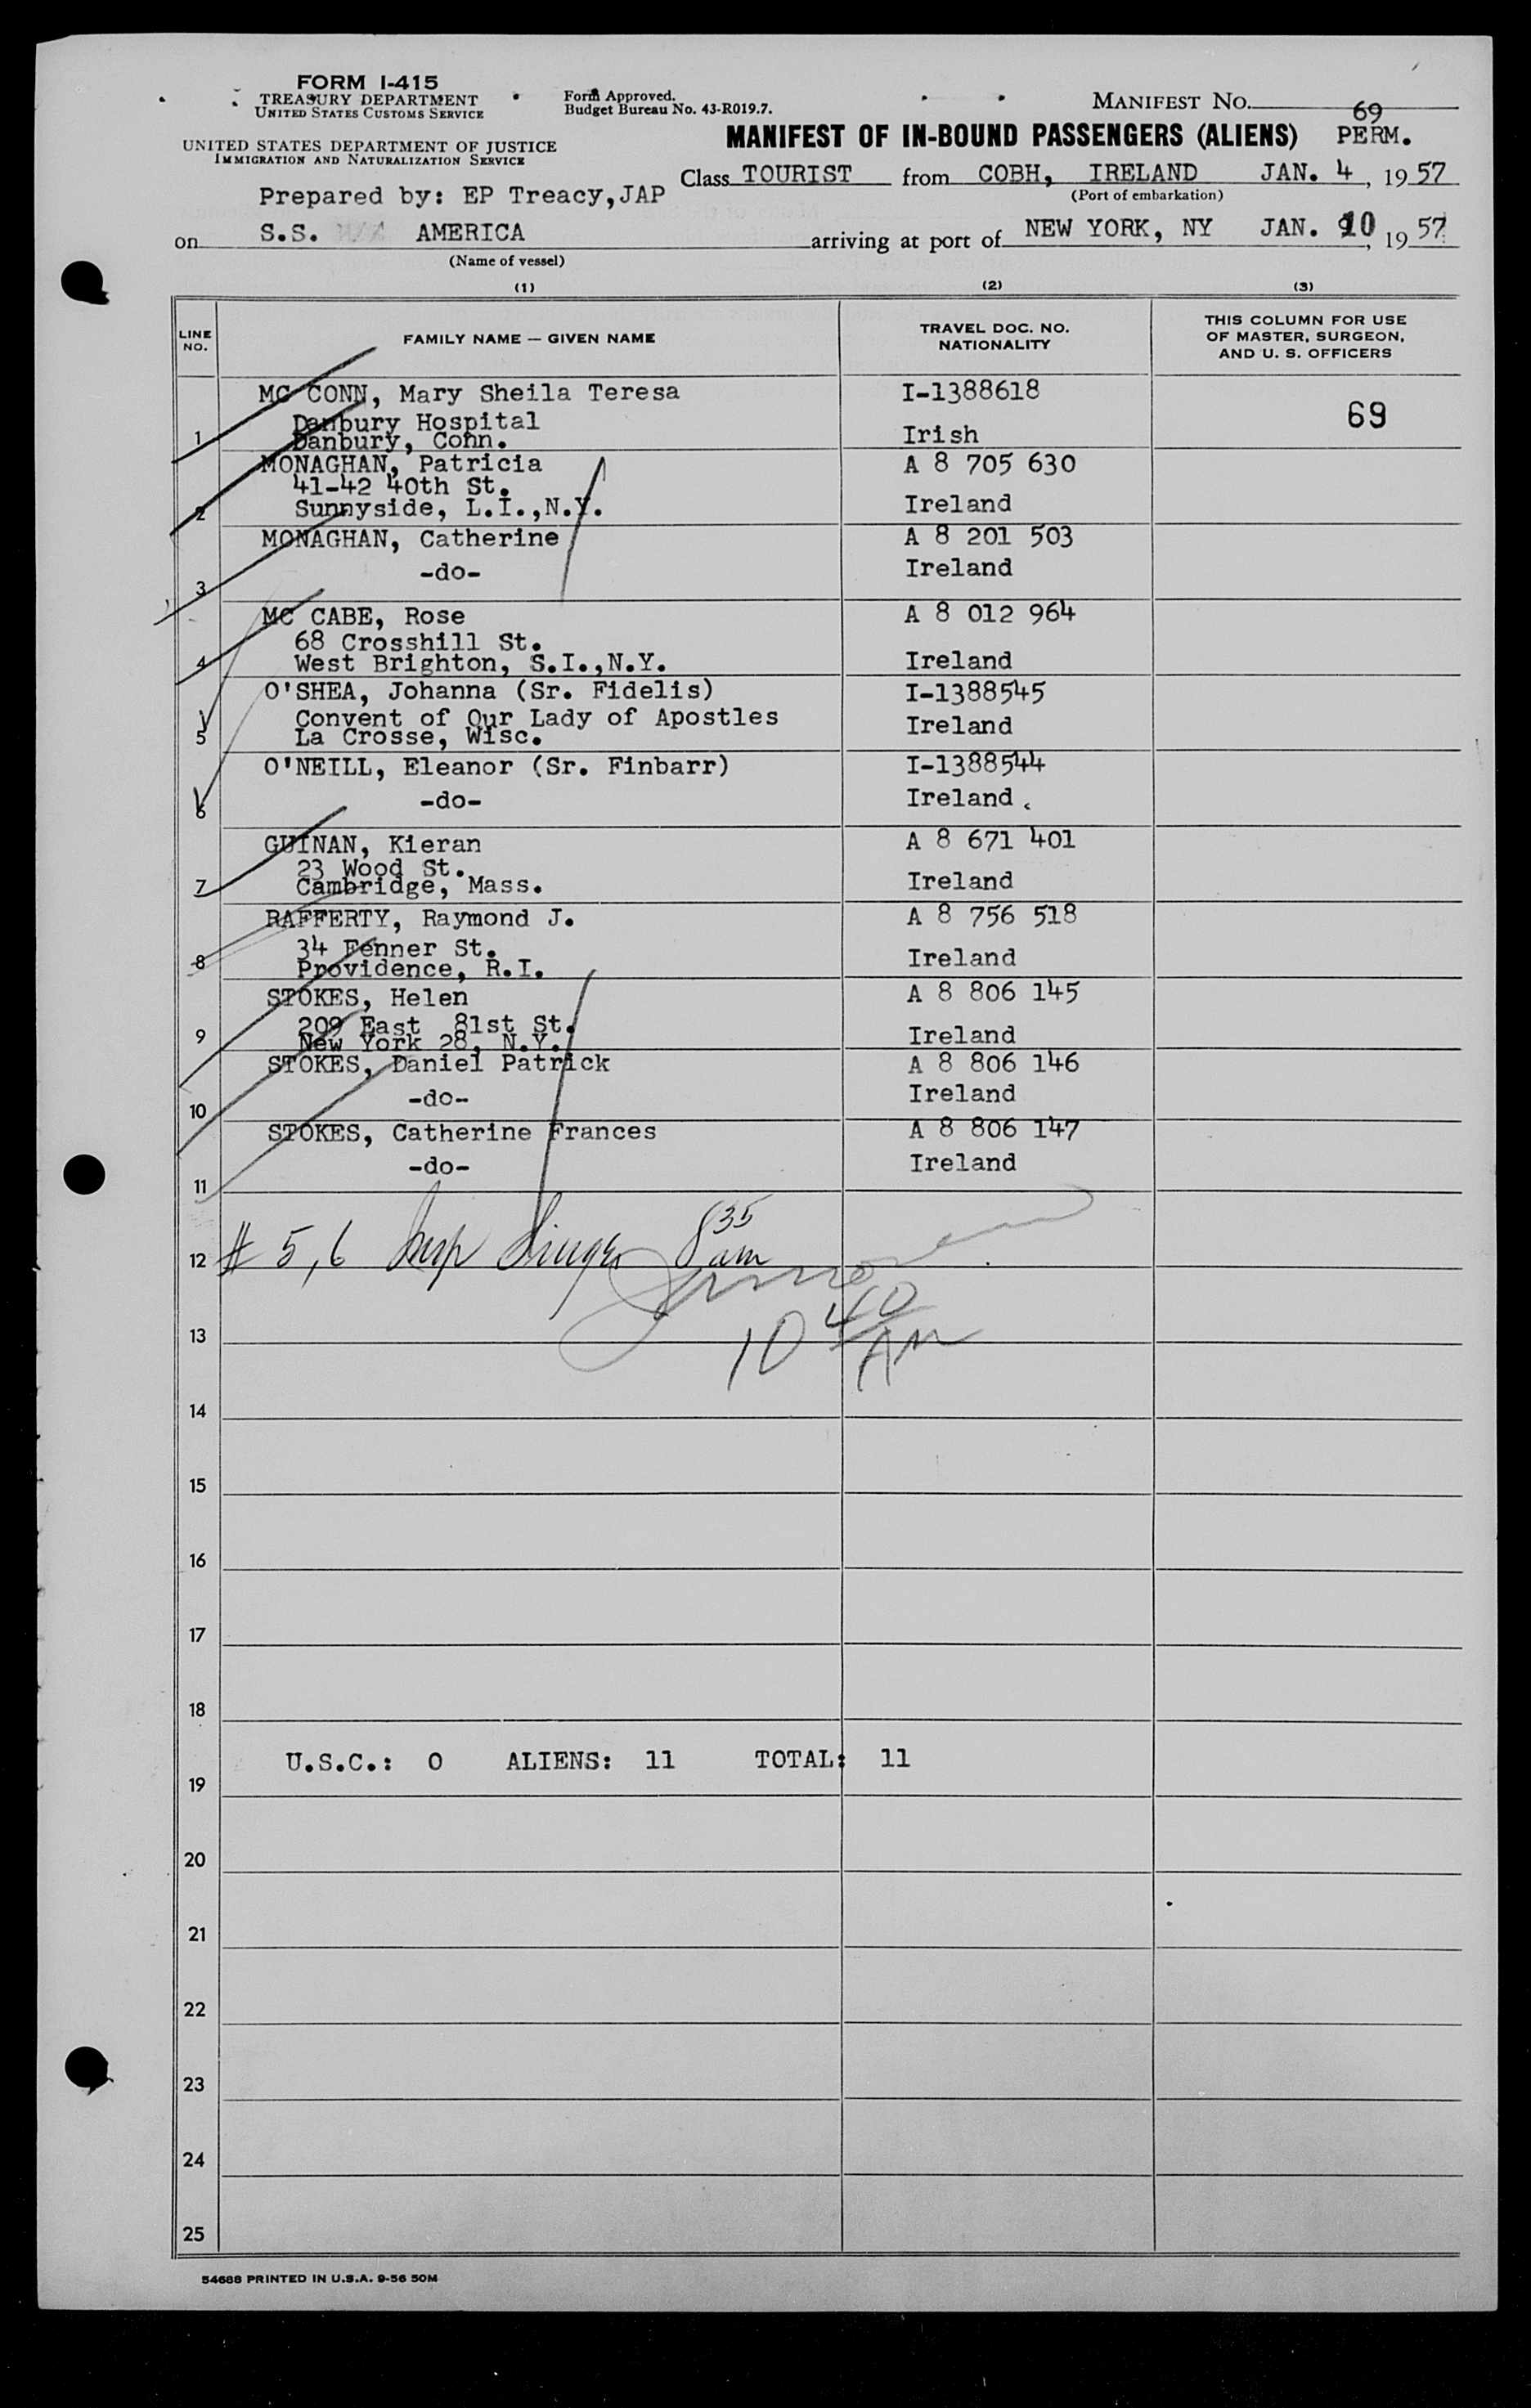 FORM I-415
TREASURY DEPARTMENT
UNITED STATES CUSTOMS SERVICE
Form Approved.
Budget Bureau No. 43-R019.7.
MANIFEST NO. 69
UNITED STATES DEPARTMENT OF JUSTICE
IMMIGRATION AND NATURALIZATION SERVICE
MANIFEST OF IN-BOUND PASSENGERS (ALIENS) PERM.
Class TOURIST from COBH, IRELAND JAN. 4, 1957
(Port of embarkation)
Prepared by: EP Treacy,JAP
on S.S. AMERICA arriving at port of NEW YORK, NY JAN. 10, 1957
(Name of vessel)
(1) (2) (3)
LINE NO.
FAMILY NAME — GIVEN NAME
TRAVEL DOC. NO.
NATIONALITY
THIS COLUMN FOR USE
OF MASTER, SURGEON,
AND U. S. OFFICERS
MC CONN, Mary Sheila Teresa I-1388618
69
Danbury Hospital
1 Danbury, Conn. Irish
MONAGHAN, Patricia A 8 705 630
41-42 40th St.
2 Sunnyside, L.I.,N.Y. Ireland
MONAGHAN, Catherine A 8 201 503
3 -do- Ireland
MC CABE, Rose A 8 012 964
68 Crosshill St.
4 West Brighton, S.I.,N.Y. Ireland
O'SHEA, Johanna (Sr. Fidelis) I-1388545
Convent of Our Lady of Apostles Ireland
5 La Crosse, Wisc.
O'NEILL, Eleanor (Sr. Finbarr) I-1388544
6 -do- Ireland
GUINAN, Kieran A 8 671 401
23 Wood St.
7 Cambridge, Mass. Ireland
RAFFERTY, Raymond J. A 8 756 518
34 Fenner St.
8 Providence, R.I. Ireland
STOKES, Helen A 8 806 145
209 East 81st St.
9 New York 28, N.Y. Ireland
STOKES, Daniel Patrick A 8 806 146
10 -do- Ireland
STOKES, Catherine Frances A 8 806 147
11 -do- Ireland
12 # 5,6 Insp 8 35 am
13 10 40 AM
14
15
16
17
18
19 U.S.C.: 0 ALIENS: 11 TOTAL: 11
20
21
22
23
24
25
54688 PRINTED IN U.S.A. 9-56 50M